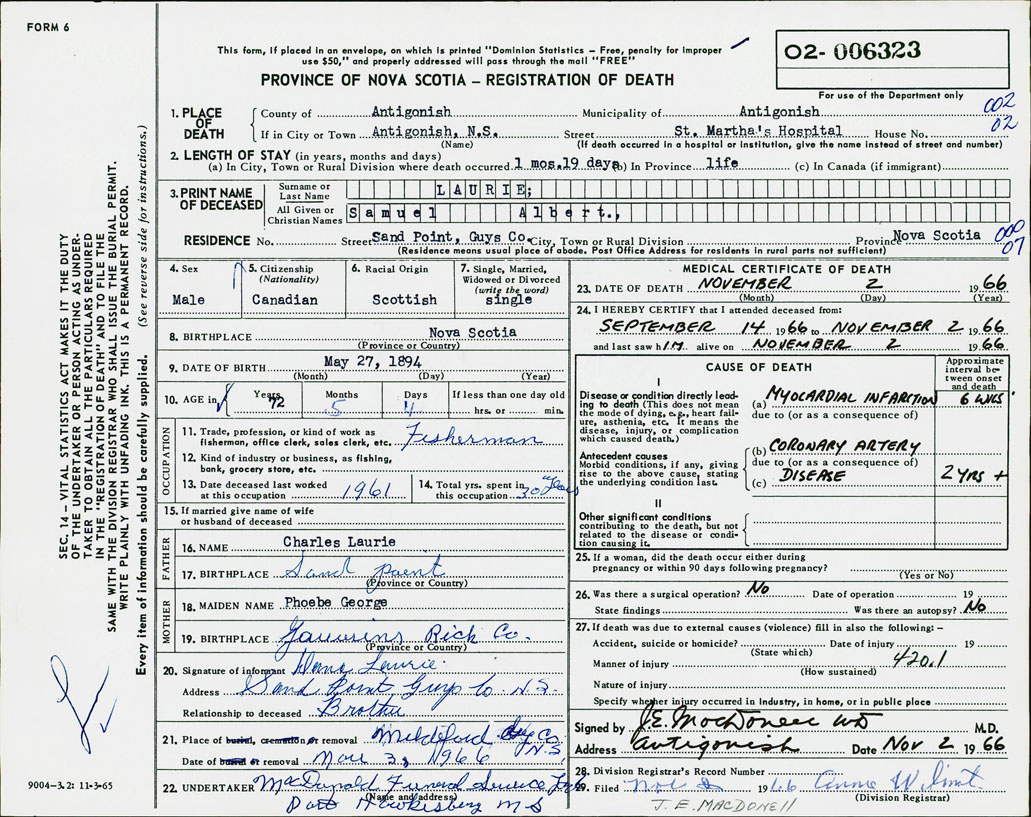 FORM 6
This form, if placed in an envelope, on which is printed "Dominion Statistics – Free, penalty for improper
use $50," and properly addressed will pass through the mail "FREE"
PROVINCE OF NOVA SCOTIA – REGISTRATION OF DEATH
02- 006323
For use of the Department only
002
02
1. PLACE OF DEATH
County of Antigonish Municipality of Antigonish
If in City or Town Antigonish, N.S. Street St. Martha's Hospital House No.
(Name) (If death occurred in a hospital or institution, give the name instead of street and number)
2. LENGTH OF STAY (in years, months and days)
(a) In City, Town or Rural Division where death occurred 1 mos.19 days (b) In Province life (c) In Canada (if immigrant)
3. PRINT NAME OF DECEASED
Surname or Last Name LAURIE;
All Given or Christian Names Samuel Albert.,
RESIDENCE No. Street Sand Point, Guys Co. City, Town or Rural Division Province Nova Scotia
000
07
(Residence means usual place of abode. Post Office Address for residents in rural parts not sufficient)
4. Sex
Male
5. Citizenship
(Nationality)
Canadian
6. Racial Origin
Scottish
7. Single, Married,
Widowed or Divorced
(write the word)
single
8. BIRTHPLACE Nova Scotia
(Province or Country)
9. DATE OF BIRTH May 27, 1894
(Month) (Day) (Year)
10. AGE in Years 72 Months 5 Days 4 If less than one day old
hrs. or min.
OCCUPATION
11. Trade, profession, or kind of work as
fisherman, office clerk, sales clerk, etc. Fisherman
12. Kind of industry or business, as fishing,
bank, grocery store, etc.
13. Date deceased last worked
at this occupation 1961
14. Total yrs. spent in
this occupation 30 years
15. If married give name of wife
or husband of deceased
FATHER
16. NAME Charles Laurie
17. BIRTHPLACE Sand point
(Province or Country)
MOTHER
18. MAIDEN NAME Phoebe George
19. BIRTHPLACE Rich Co.
(Province or Country)
20. Signature of informant Laurie
Address Sand Point Guys Co. N.S.
Relationship to deceased Brother
21. Place of burial, cremation or removal Mulgrave Guy Co. N.S.
Date of burial or removal Nov 3, 1966
22. UNDERTAKER MacDonald Funeral Service
(Name and address)
Port Hawkesbury N S
MEDICAL CERTIFICATE OF DEATH
23. DATE OF DEATH NOVEMBER 2 1966
(Month) (Day) (Year)
24. I HEREBY CERTIFY that I attended deceased from:
SEPTEMBER 14 1966 to NOVEMBER 2 1966
and last saw hIM alive on NOVEMBER 2 1966
CAUSE OF DEATH
Approximate interval between onset and death
I
Disease or condition directly leading to death (This does not mean the mode of dying, e.g., heart failure, asthenia, etc. It means the disease, injury, or complication which caused death.)
(a) MYOCARDIAL INFARCTION 6 WKS
due to (or as a consequence of)
Antecedent causes
Morbid conditions, if any, giving rise to the above cause, stating the underlying condition last.
(b) CORONARY ARTERY
due to (or as a consequence of)
(c) DISEASE 2 YRS +
II
Other significant conditions
contributing to the death, but not related to the disease or condition causing it.
25. If a woman, did the death occur either during
pregnancy or within 90 days following pregnancy?
(Yes or No)
26. Was there a surgical operation? No Date of operation 19
State findings Was there an autopsy? No
27. If death was due to external causes (violence) fill in also the following: –
Accident, suicide or homicide? Date of injury 19
(State which)
Manner of injury 420.1
(How sustained)
Nature of injury
Specify whether injury occurred in industry, in home, or in public place
Signed by J.E. MacDonell MD M.D.
Address Antigonish Date Nov 2 1966
28. Division Registrar's Record Number
29. Filed Nov 1966 Anna
(Division Registrar)
J. E. MACDONELL
SEC. 14 – VITAL STATISTICS ACT MAKES IT THE DUTY
OF THE UNDERTAKER OR PERSON ACTING AS UNDER-
TAKER TO OBTAIN ALL THE PARTICULARS REQUIRED
IN THE "REGISTRATION OF DEATH" AND TO FILE THE
SAME WITH THE DIVISION REGISTRAR WHO SHALL ISSUE THE BURIAL PERMIT.
WRITE PLAINLY WITH UNFADING INK. THIS IS A PERMANENT RECORD.
Every item of information should be carefully supplied. (See reverse side for instructions.)
9004-3.2: 11-3-65